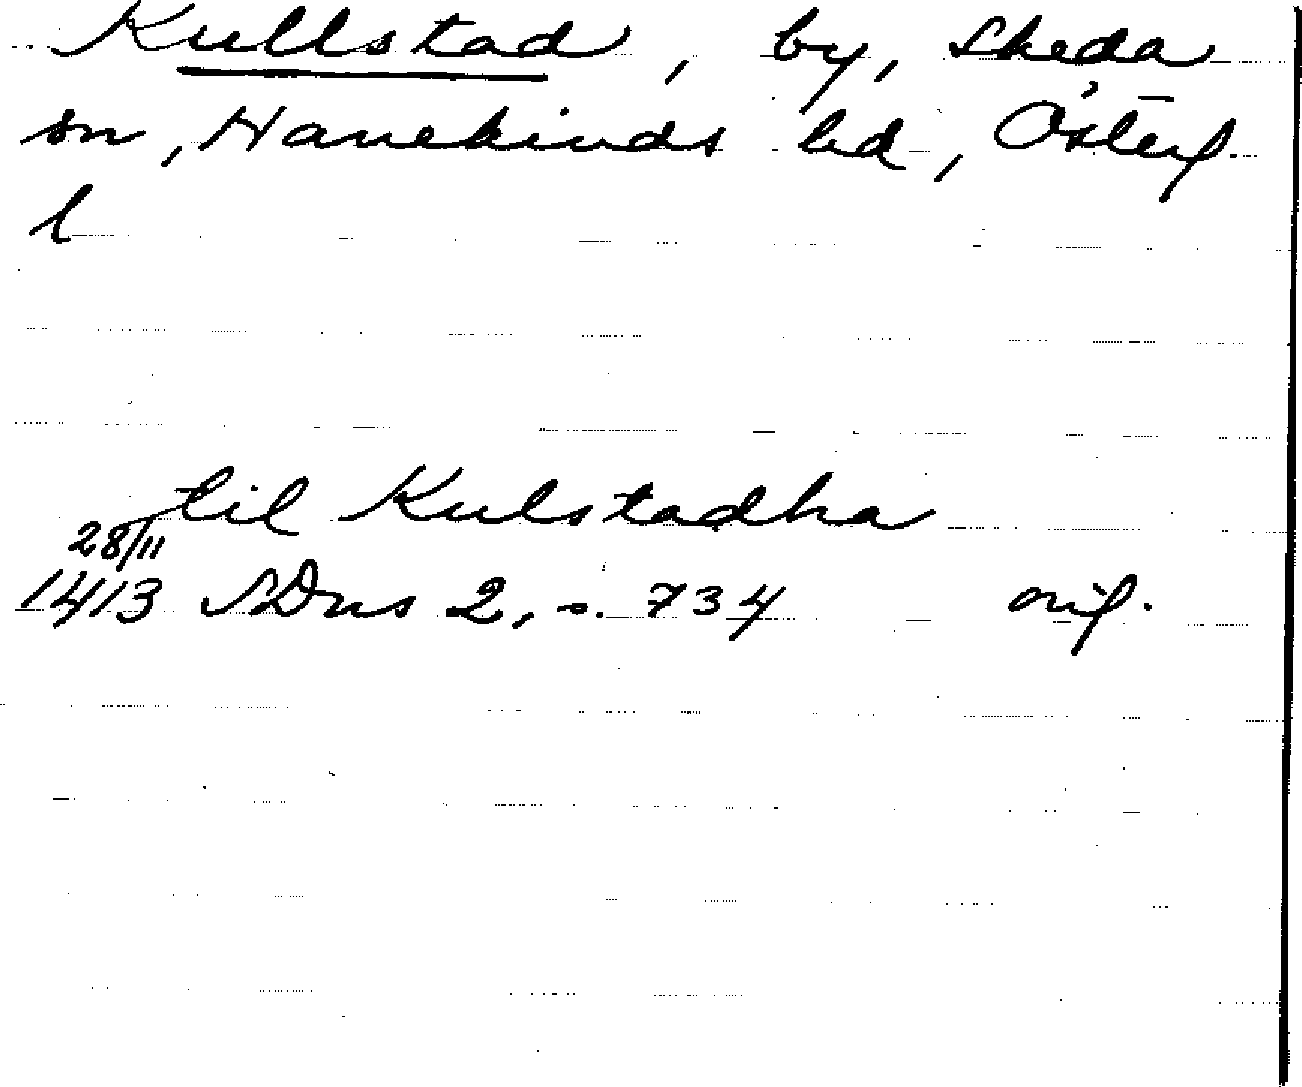 Kullstad, by, Skeda
sn, Hanekinds hd, Österg.
l
til Kulstadha
28/11
1413 SDns 2, s. 734 orig.